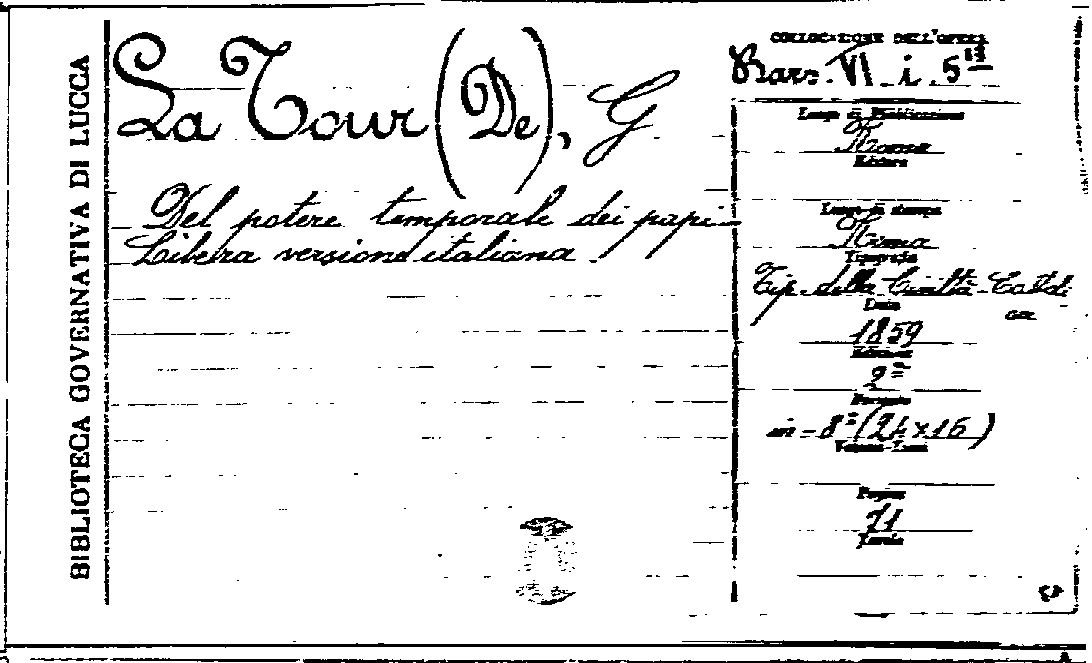 BIBLIOTECA GOVERNATIVA DI LUCCA
La Tour (De), G
Del potere temporale dei papi -
Libera versione italiana.
COLLOCAZIONE DELL'OPERA
VI. i. 5
Luogo di Pubblicazione
Roma
Editore
Luogo di stampa
Roma
Tipografia
Tip. della Civiltà Cattolica
Data
1859
Edizione
2ª
Formato
in-8º (24x16)
Pagine
71
Tavole